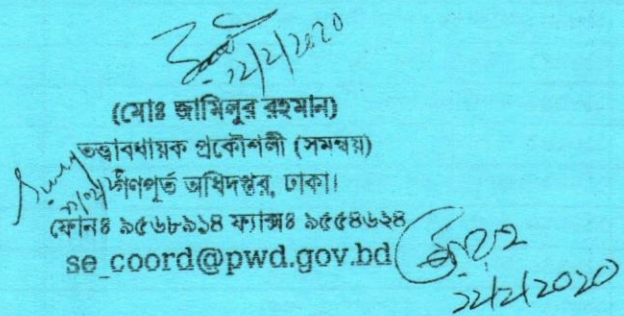 12/2/2020
(মোঃ জামিলুর রহমান)
তত্ত্বাবধায়ক প্রকৌশলী (সমন্বয়)
গণপূর্ত অধিদপ্তর, ঢাকা।
ফোনঃ ৯৫৬৮৯১৪ ফ্যাক্সঃ ৯৫৫৪৬২৪
se_coord@pwd.gov.bd
12/2/2020